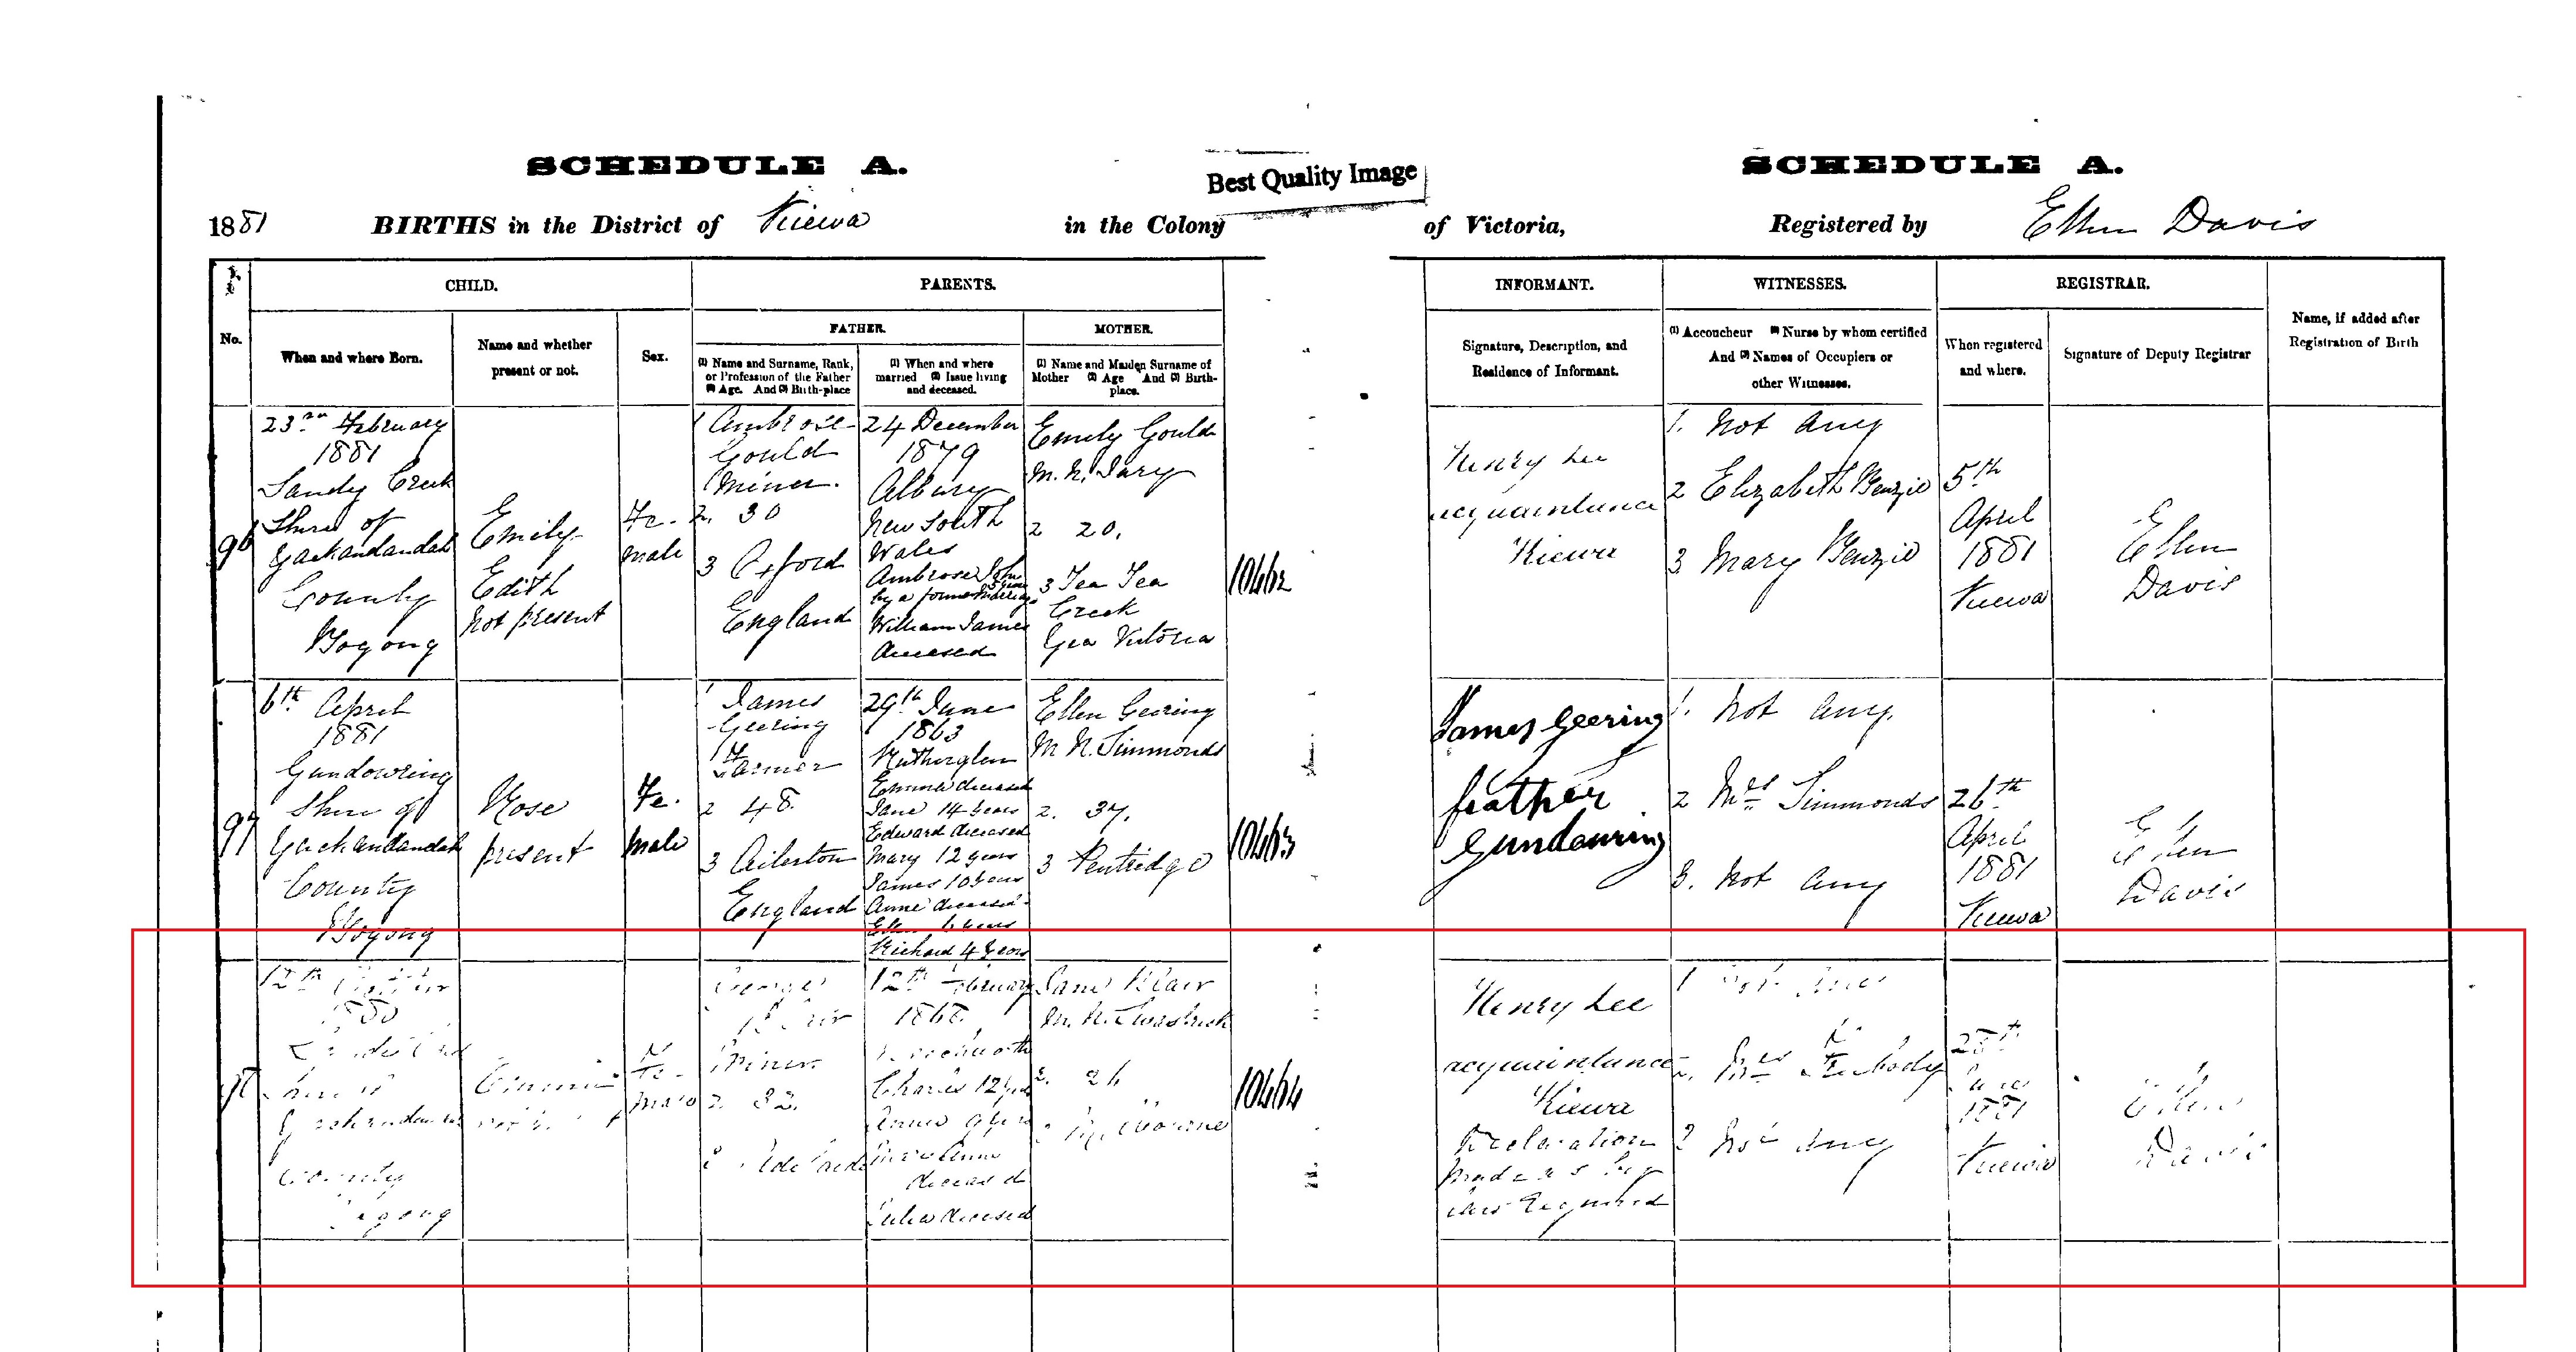 SCHEDULE A.
Best Quality Image
SCHEDULE A.
1881 BIRTHS in the District of Kiewa in the Colony of Victoria, Registered by Ellen Davis
CHILD.
PARENTS.
INFORMANT.
WITNESSES.
REGISTRAR.
FATHER.
MOTHER.
No.
When and where Born.
Name and whether
present or not.
Sex.
(1) Name and Surname, Rank,
or Profession of the Father
(2) Age. And (3) Birth-place
(1) When and where
married (2) Issue living
and deceased.
(1) Name and Maiden Surname of
Mother (2) Age And (3) Birth-
place.
Signature, Description, and
Residence of Informant.
(1) Accoucheur (2) Nurse by whom certified
And (3) Names of Occupiers or
other Witnesses.
When registered
and where.
Signature of Deputy Registrar
Name, if added after
Registration of Birth
96
23rd February
1881
Sandy Creek
Shire of
Yackandandah
County
Bogong
Emily
Edith
not present
Fe-
male
1 Ambrose
Gould
Miner.
2. 30
3 Oxford
England
24 December
1879
Albury
New South
Wales
Ambrose John
by a former marriage
William James
deceased
Emily Gould
M. N.
2 20.
3 Tea Tea
Creek
Victoria
10462
Henry Lee
acquaintance
Kiewa
1. Not any
2 Elizabeth Benzie
3 Mary Benzie
5th
April
1881
Kiewa
Ellen
Davis
97
6th April
1881
Gundowring
Shire of
Yackandandah
County
Bogong
Rose
present
Fe-
male
1 James
Geering
Farmer
2 48.
3
England
29th June
1863
Rutherglen
Emma deceased
Jane 14 years
Edward deceased
Mary 12 years
James 10 years
Anne deceased
Ellen 6 years
Richard 4 years
Ellen Geering
M N. Simmonds
2. 37.
3 Pentridge
10463
James Geering
feather
Gundowring
1. Not any.
2 Mrs Simmonds
3. Not any
26th
April
1881
Kiewa
Ellen
Davis
12th
1880
Yackandandah
County
Bogong
Fe-
male
George
Blair
Miner.
2. 32.
3 Adelaide
12th February
1868
Beechworth
Charles 12 years
Annie 9 years
deceased
Julia deceased
Jane Blair
M. N.
2.
3 Melbourne
10464
Henry Lee
acquaintance
Kiewa
Declaration
made as by
law required
1 Not any
2. Mrs Peabody
3 Not any
25th
1881
Kiewa
Ellen
Davis